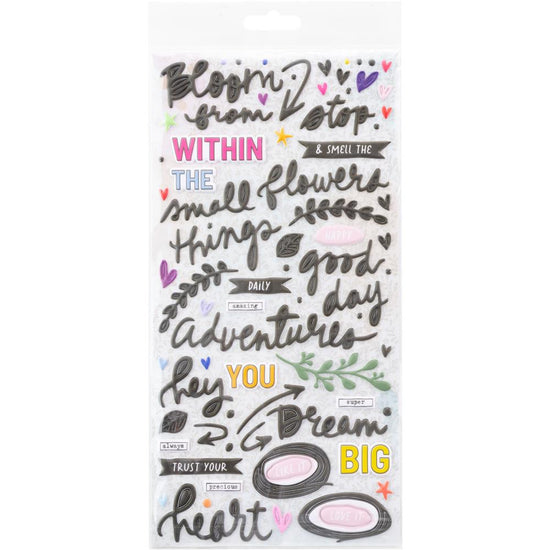 Bloom
from
stop
WITHIN
& SMELL THE
THE
small flowers
things
HAPPY
good
DAILY
day
amazing
adventures
hey
YOU
super
Dream
always
BIG
TRUST YOUR
LIKE IT
precious
heart
LOVE IT